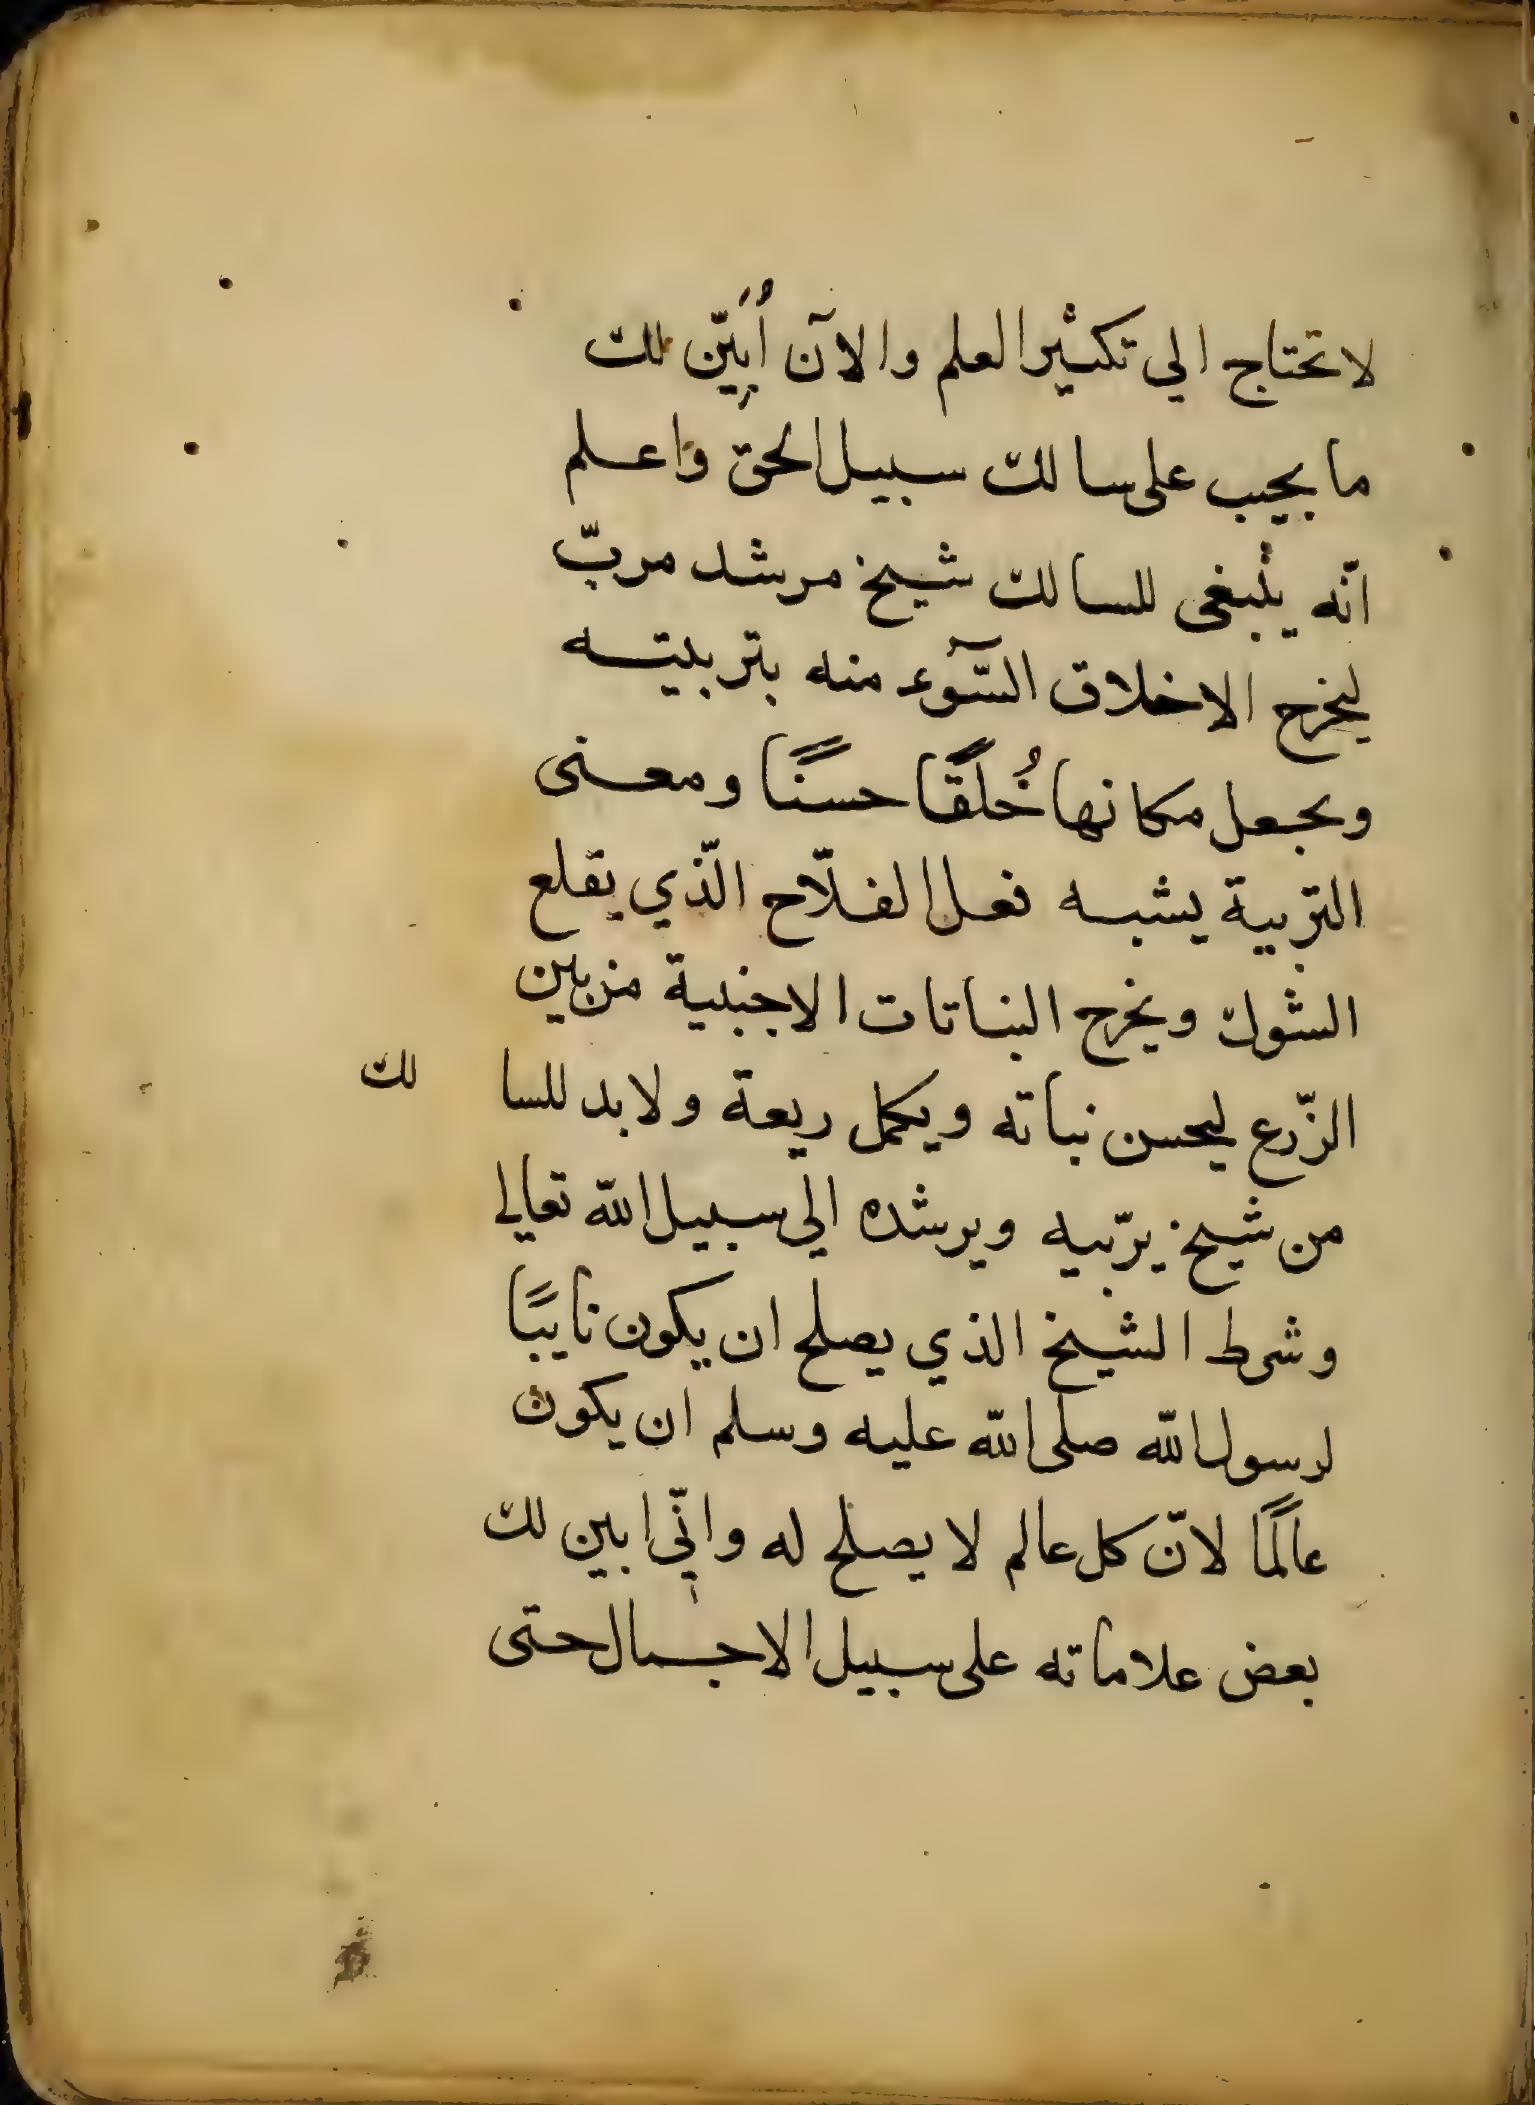 لا تحتاج الي تكثير العلم والآن أُبَيِّن لك
ما يجب على سالك سبيل الحق واعلم
انّه ينبغى للسالك شيخ مرشد مربّ
ليخرج الاخلاق السّوٓء منه بتربيته
ويجعل مكانها خُلقًا حسنًا ومعنى
التربية يشبه فعل الفلّاح الّذي يقلع
الشوك ويخرج النباتات الاجنبية من بين
الزّرع ليحسن نباته ويكمل ريعة ولا بد للسا لك
من شيخ يربّيه ويرشده الي سبيل الله تعالي
وشرط الشيخ الذي يصلح ان يكون نايبًا
لرسول الله صلى الله عليه وسلم ان يكون
عالمًا لانّ كل عالم لا يصلح له وانّي ابين لك
بعض علاماته على سبيل الاجمال حتى